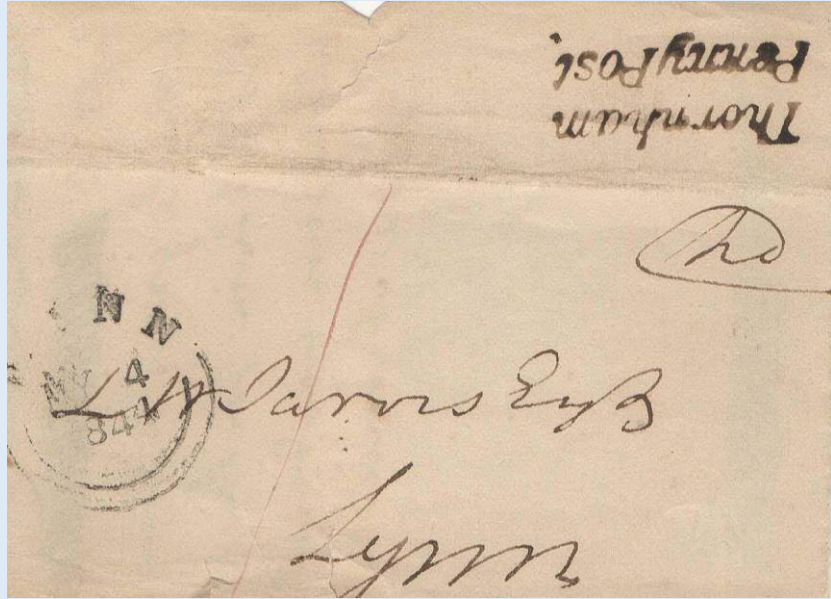 Thornham
Penny Post,
Pd
NN
4
844
L W Jarvis Esqr
Lynn